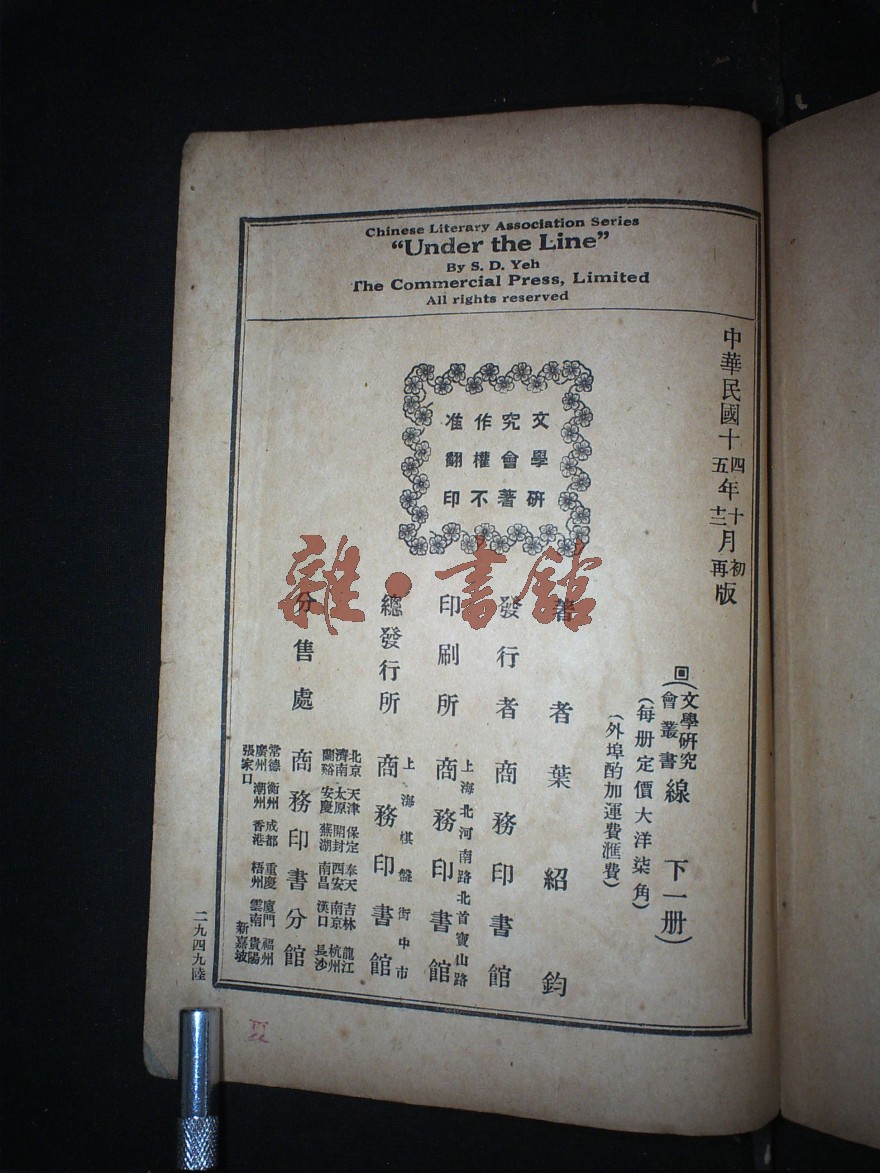 Chinese Literary Association Series
“Under the Line”
By S. D. Yeh
The Commercial Press, Limited
All rights reserved
中華民國十四年十月初版
五 十二 再
文學研
究會著
作權不
准翻印
回(文學研究會叢書)線下一册)
(每册定價大洋柒角)
(外埠酌加運費滙費)
著者葉紹鈞
發行者商務印書館
印刷所
上海北河南路北首寶山路
商務印書館
總發行所
上海棋盤街中市
商務印書館
分售處
北京 天津 保定 奉天 吉林 龍江
濟南 太原 開封 西安 南京 杭州
蘭谿 安慶 蕪湖 南昌 漢口 長沙
商務印書分館
常德 衡州 成都 重慶 廈門 福州
廣州 潮州 香港 梧州 雲南 貴陽
張家口 新嘉坡
二九四九陸
雜·書館